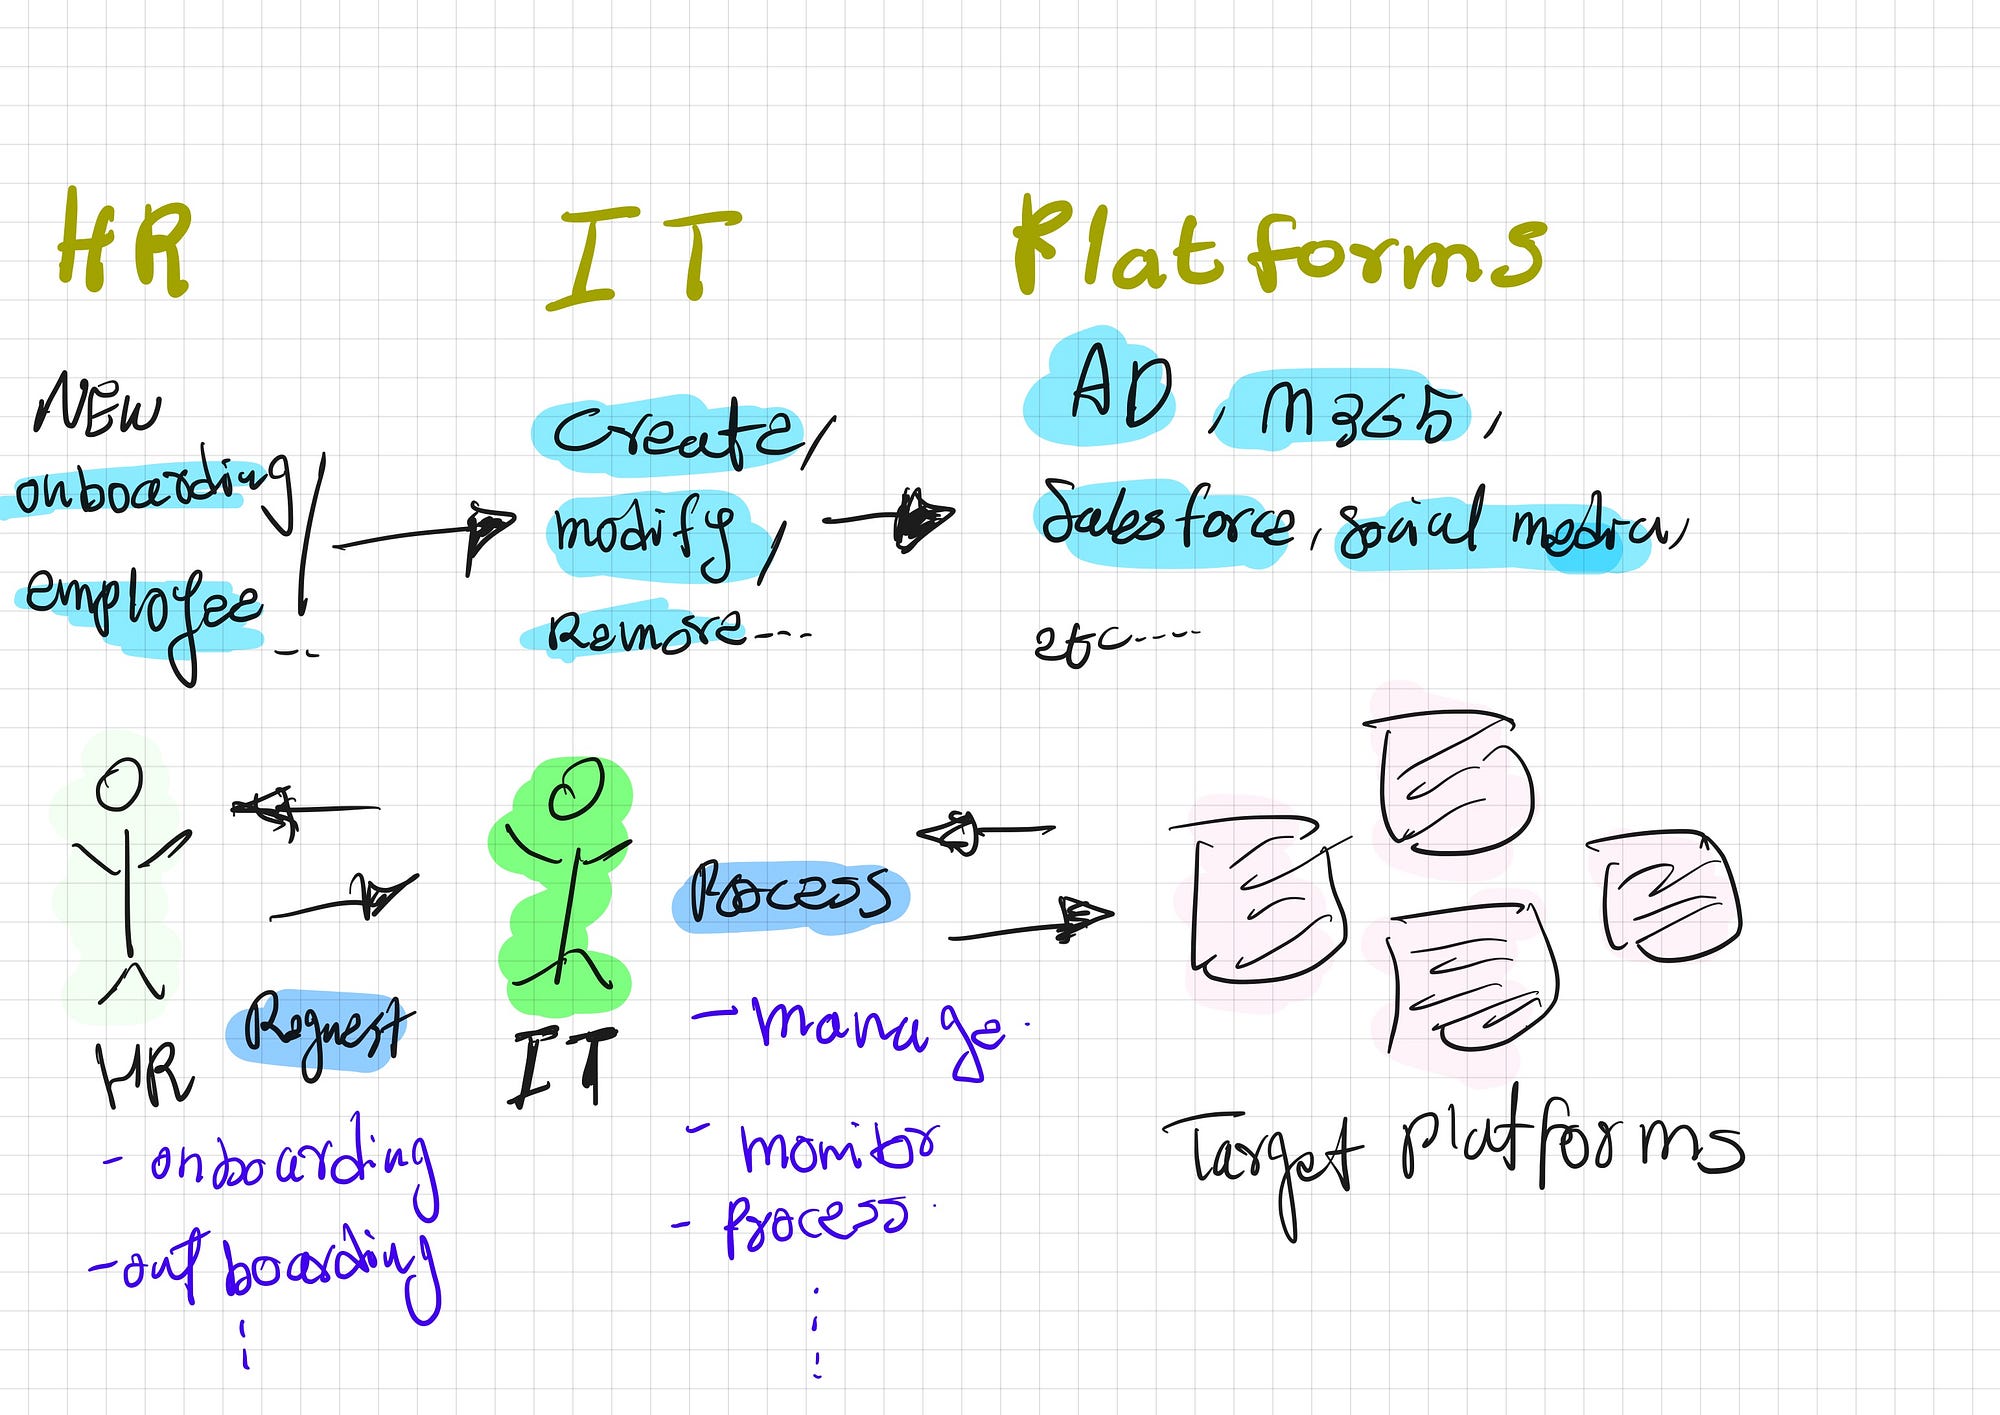 HR IT Platforms
NEW
onboarding/
employee --
Create/
modify/
Remove---
AD, M365,
Salesforce, social media,
etc----
Request
HR
- onboarding
- out boarding
IT
Process
- manage.
- monitor
- Process.
Target platforms